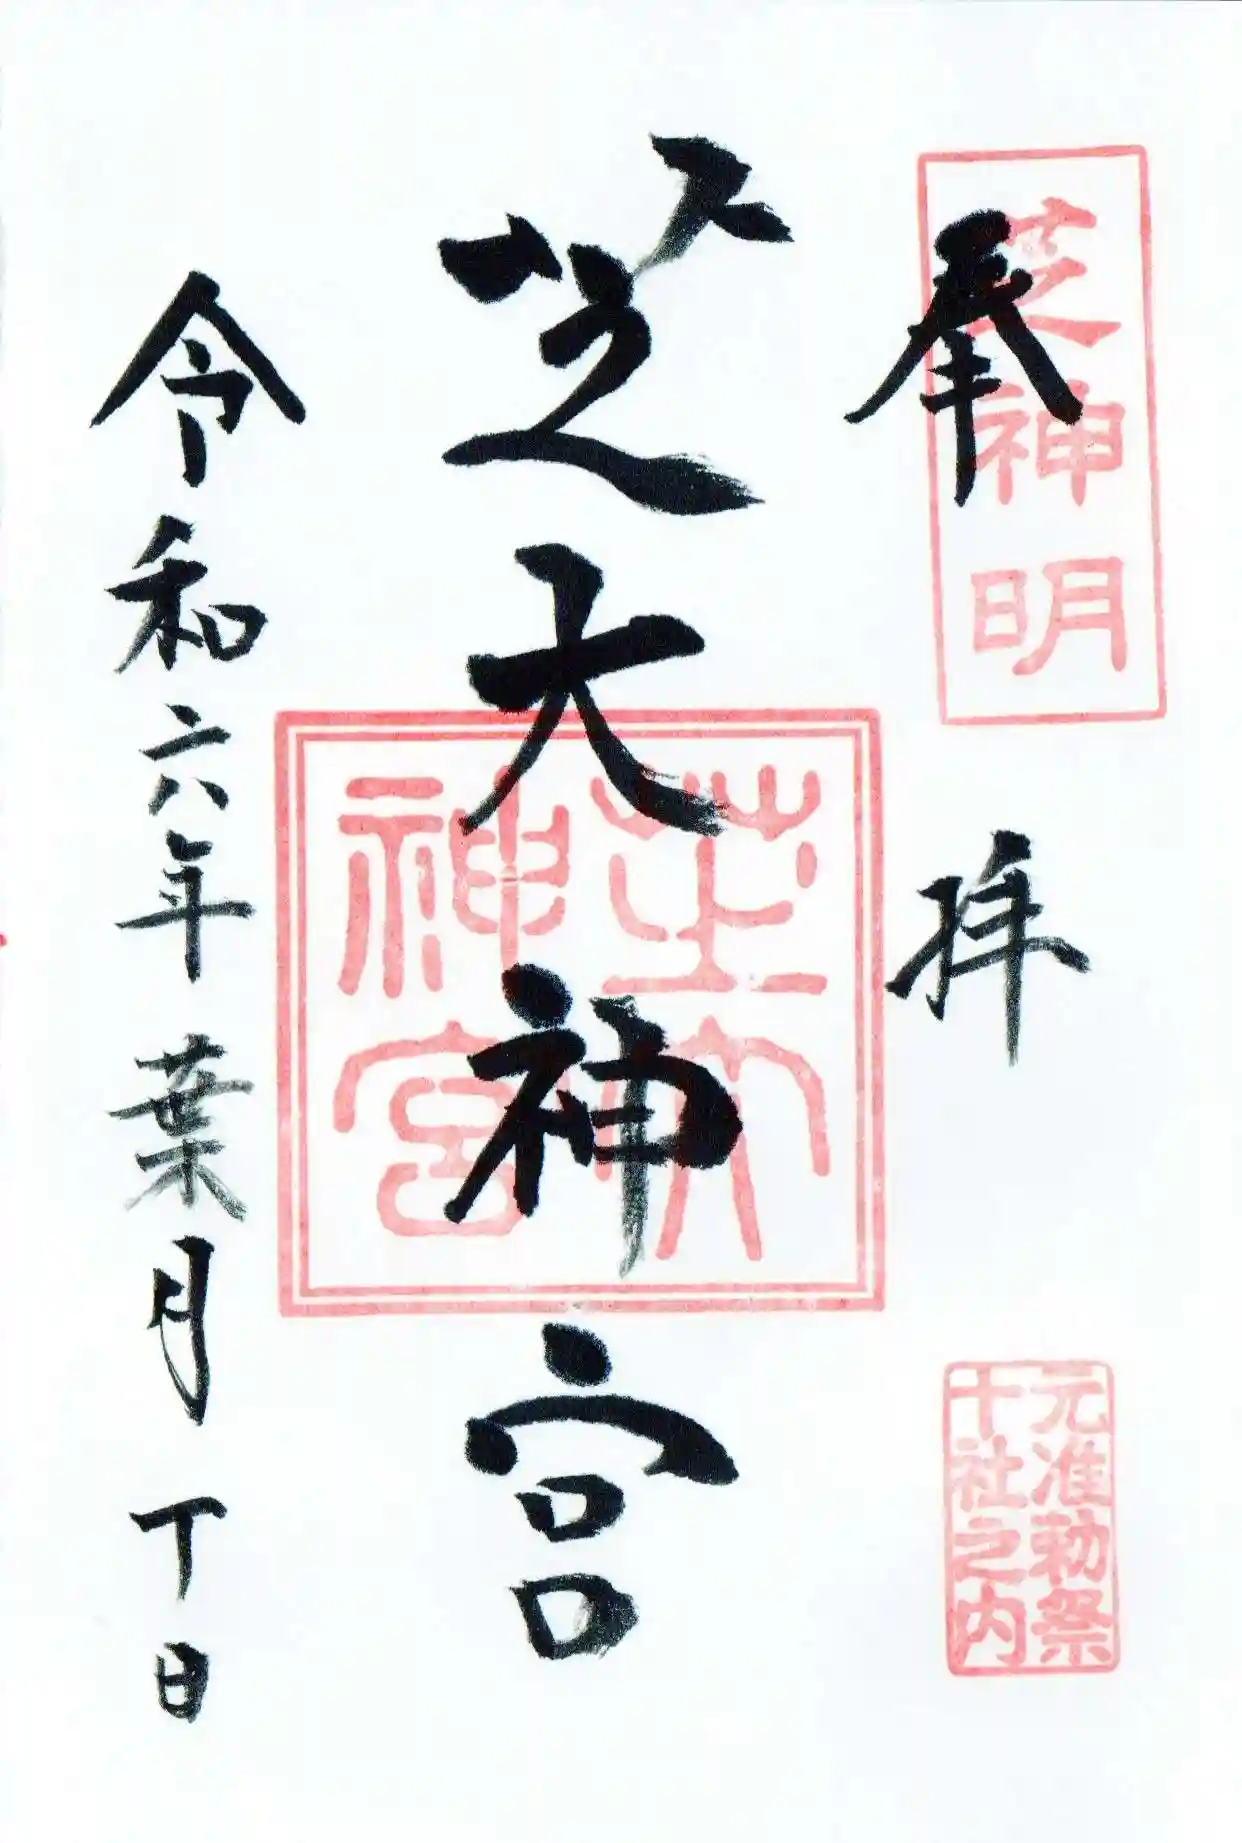 奉拝
芝神明
元准勅祭
十社之内
芝大神宮
芝大
神宮
令和六年 葉月 丁日